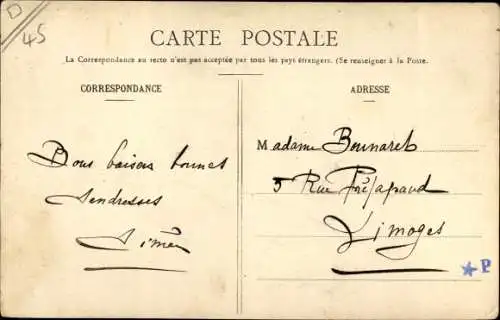 D
45
CARTE POSTALE
La Correspondance au recto n'est pas acceptée par tous les pays étrangers. (Se renseigner à la Poste.
CORRESPONDANCE
ADRESSE
Bons baisers bonnes
tendresses
Simée
Madame Bounareb
5 Rue
Limoges
P